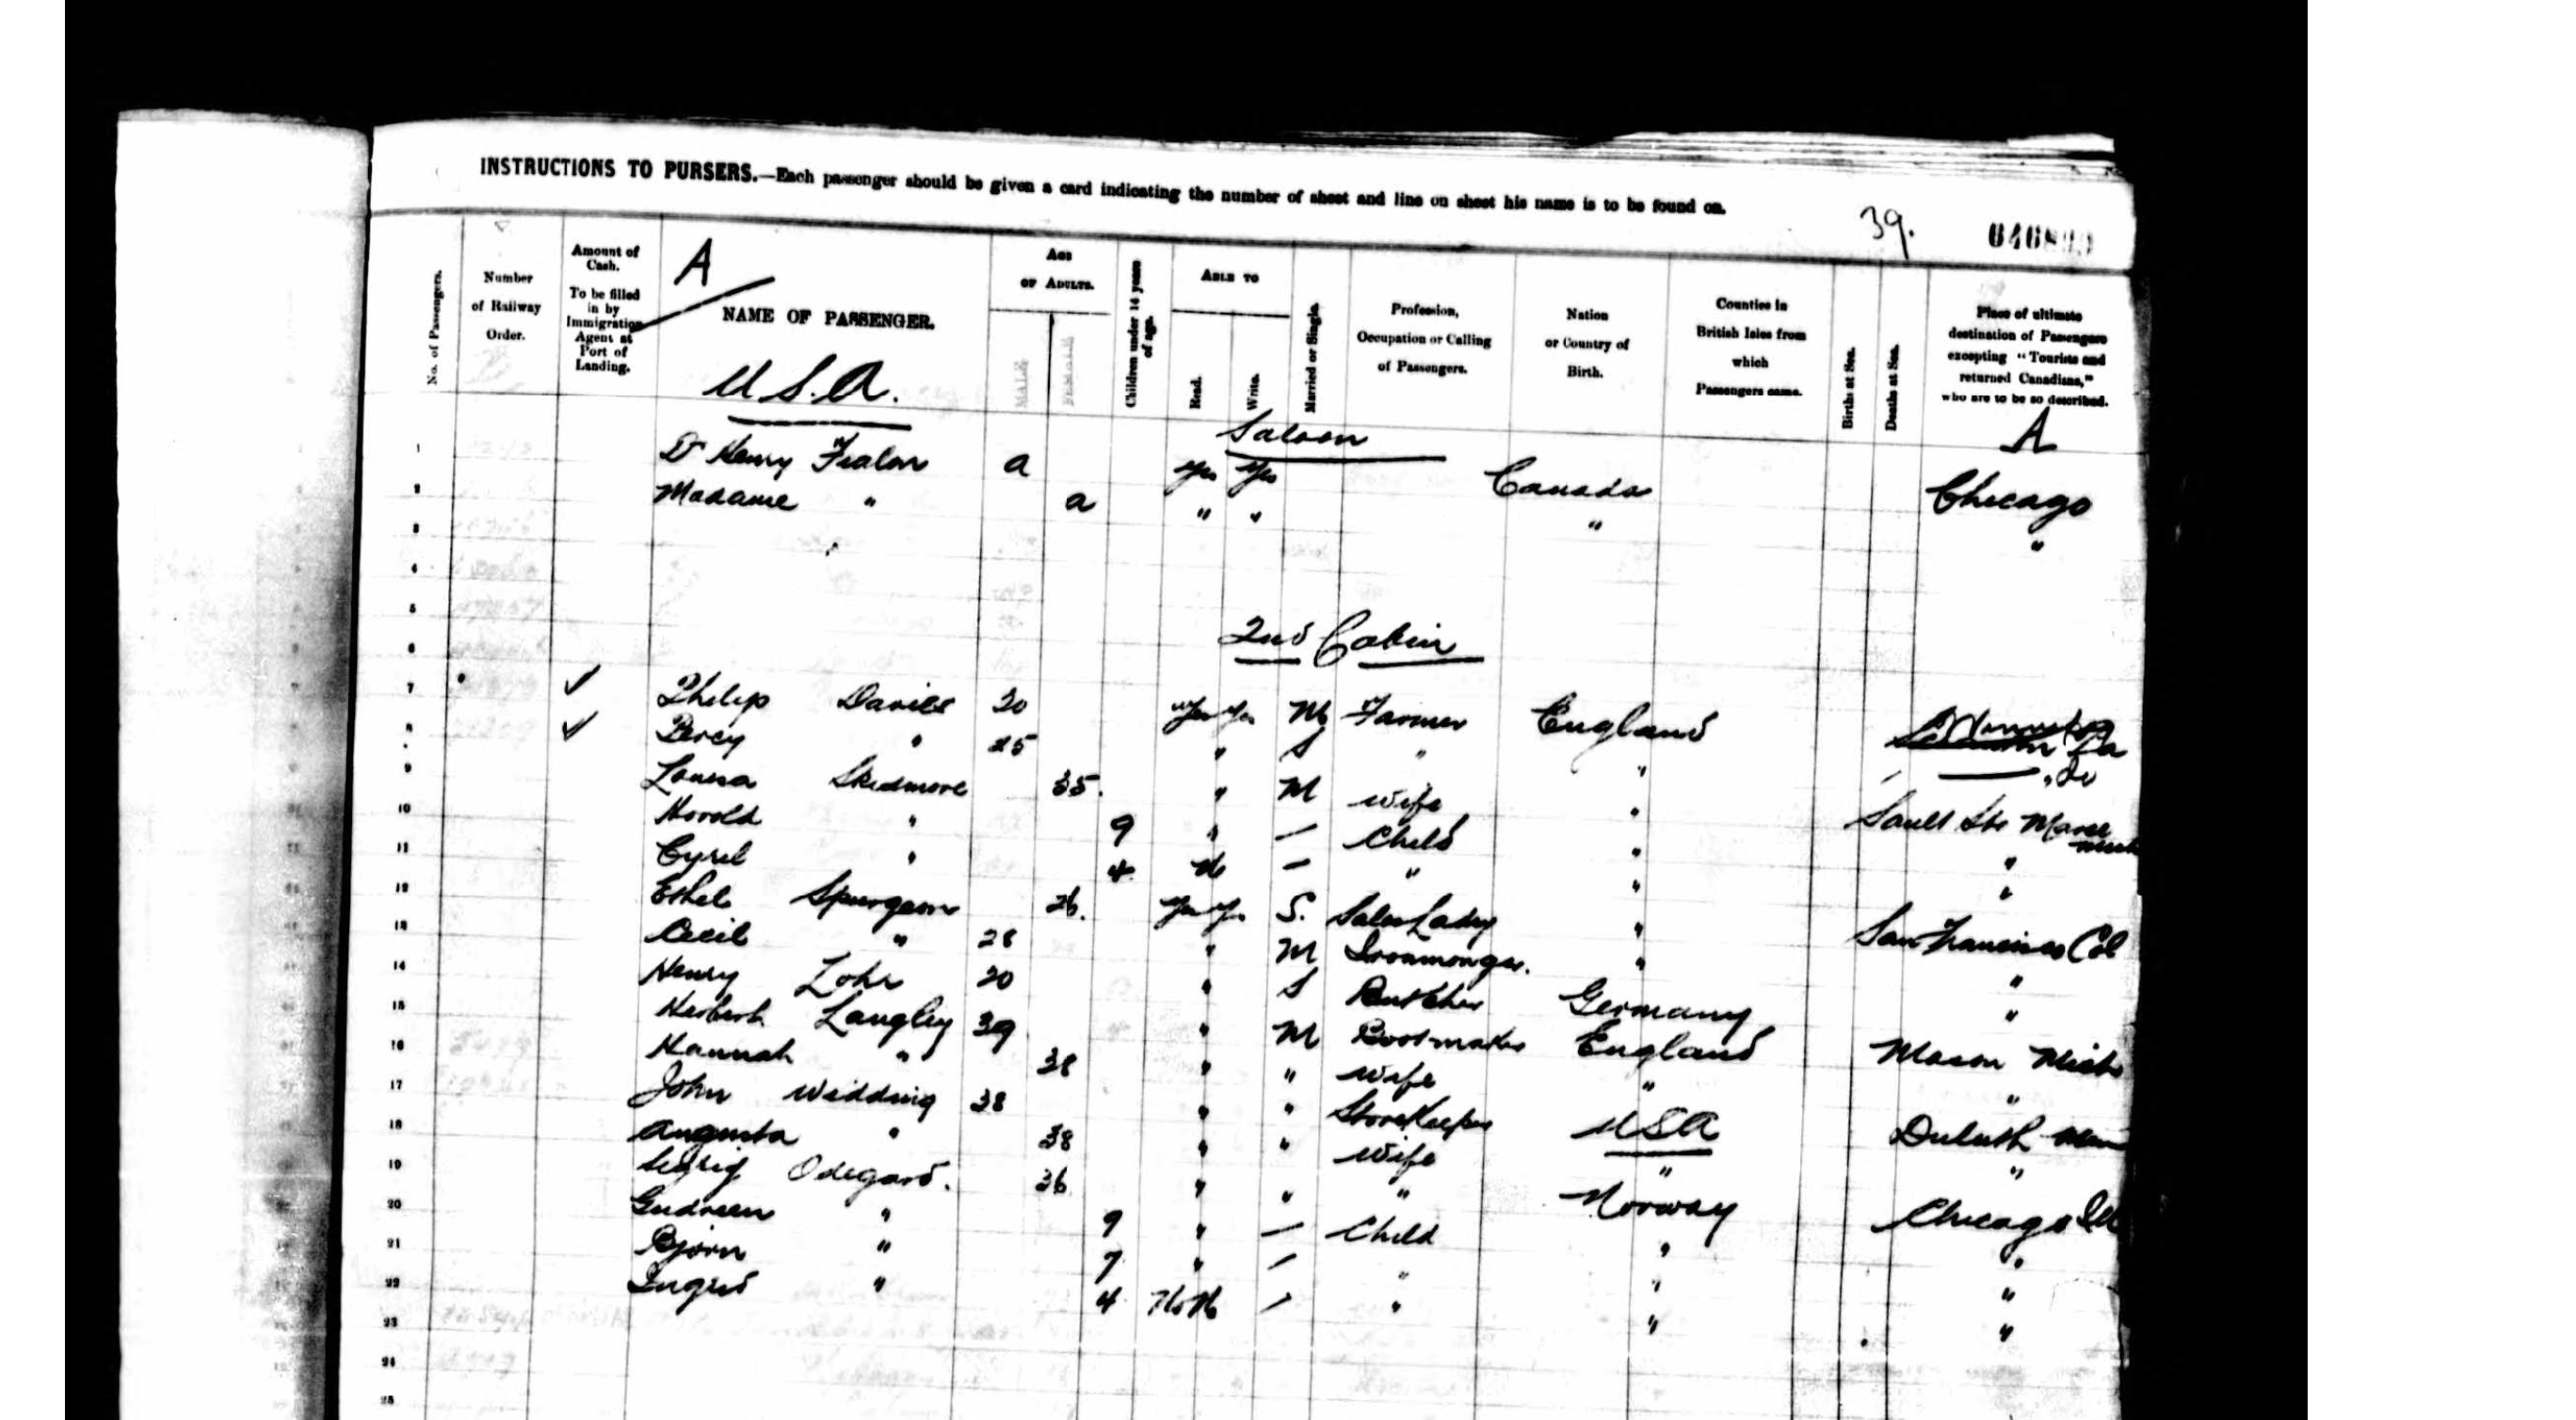 INSTRUCTIONS TO PURSERS.—Each passenger should be given a card indicating the number of sheet and line on sheet his name is to be found on.
39.
No. of Passengers.
Number of Railway Order.
Amount of Cash. To be filled in by Immigration Agent at Port of Landing.
A
NAME OF PASSENGER.
U.S.A.
AGE OF ADULTS.
MALE
FEMALE
Children under 14 years of age.
ABLE TO
Read.
Write.
Married or Single.
Profession, Occupation or Calling of Passengers.
Nation or Country of Birth.
Counties in British Isles from which Passengers came.
Births at Sea.
Deaths at Sea.
Place of ultimate destination of Passengers excepting "Tourists and returned Canadians," who are to be so described.
A
Saloon
1 Dr Henry a Yes Yes Canada Chicago
2 Madame " a " " " "
3
4
5
6
2nd Cabin
7 ✓ Philip Davies 20 Yes Yes M Farmer England Pa
8 ✓ Percy " 25 " S " " " Do
9 Louisa Skidmore 35. " M Wife " Sault Ste Marie Mich
10 Harold " 9 " — Child " "
11 Cyril " 4 No — " " "
12 Ethel Spurgeon 26. Yes Yes S. Sales Lady " San Francisco Cal
13 Cecil " 28 " M Ironmonger. " "
14 Henry Lohr 20 " S Butcher Germany "
15 Herbert Langley 39 " M Bootmaker England Mason Mich
16 Hannah " 38 " " Wife " "
17 John Widding 38 " " StoreKeeper USA Duluth Min
18 Augusta " 38 " " Wife " "
19 Odegard. 36 " " " Norway Chicago Ill
20 Gudreen " 9 " — Child " "
21 Bjorn " 7 " — " " "
22 Ingrid " 4 No No — " " "
23
24
25